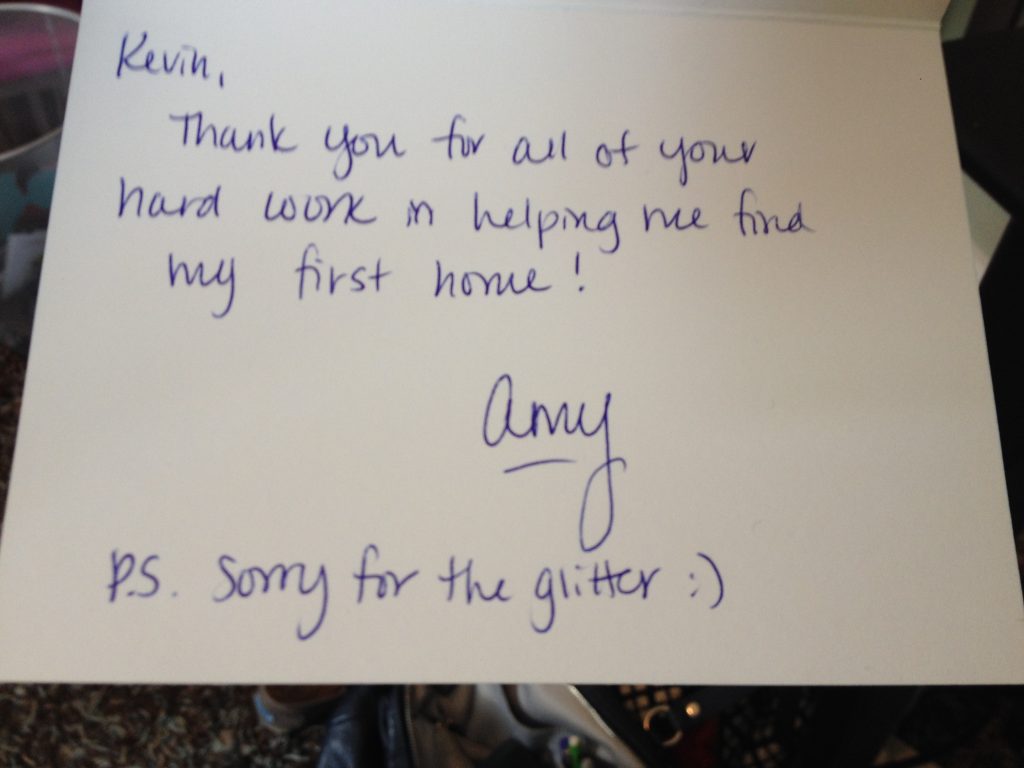 Kevin,
Thank you for all of your
hard work in helping me find
my first home!
Amy
P.S. Sorry for the glitter :)